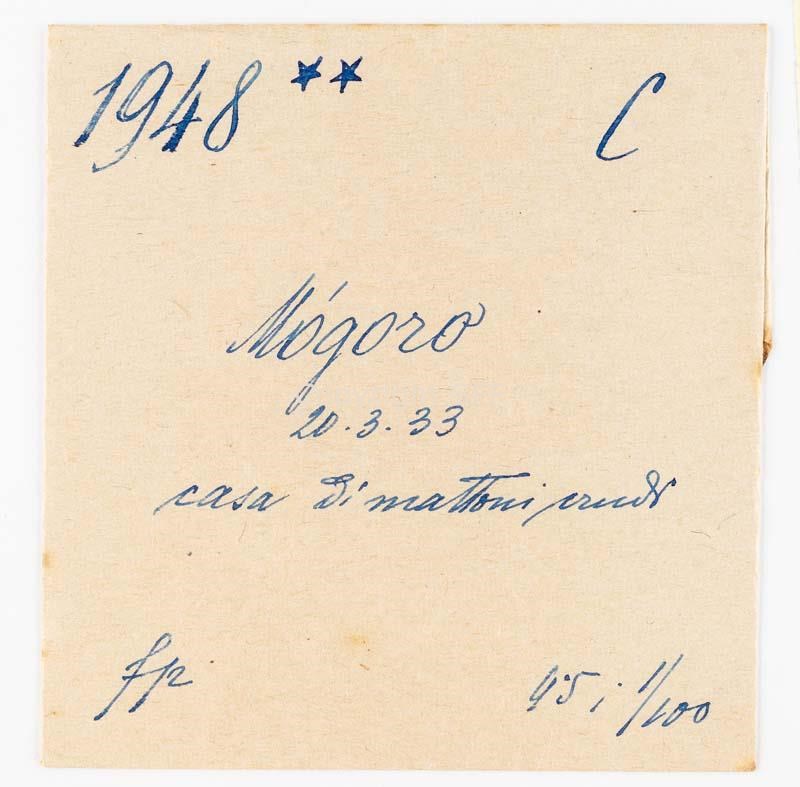 1948 ** C
Mógoro
20.3.33
casa di mattoni crudi
fp 45 i 1/100